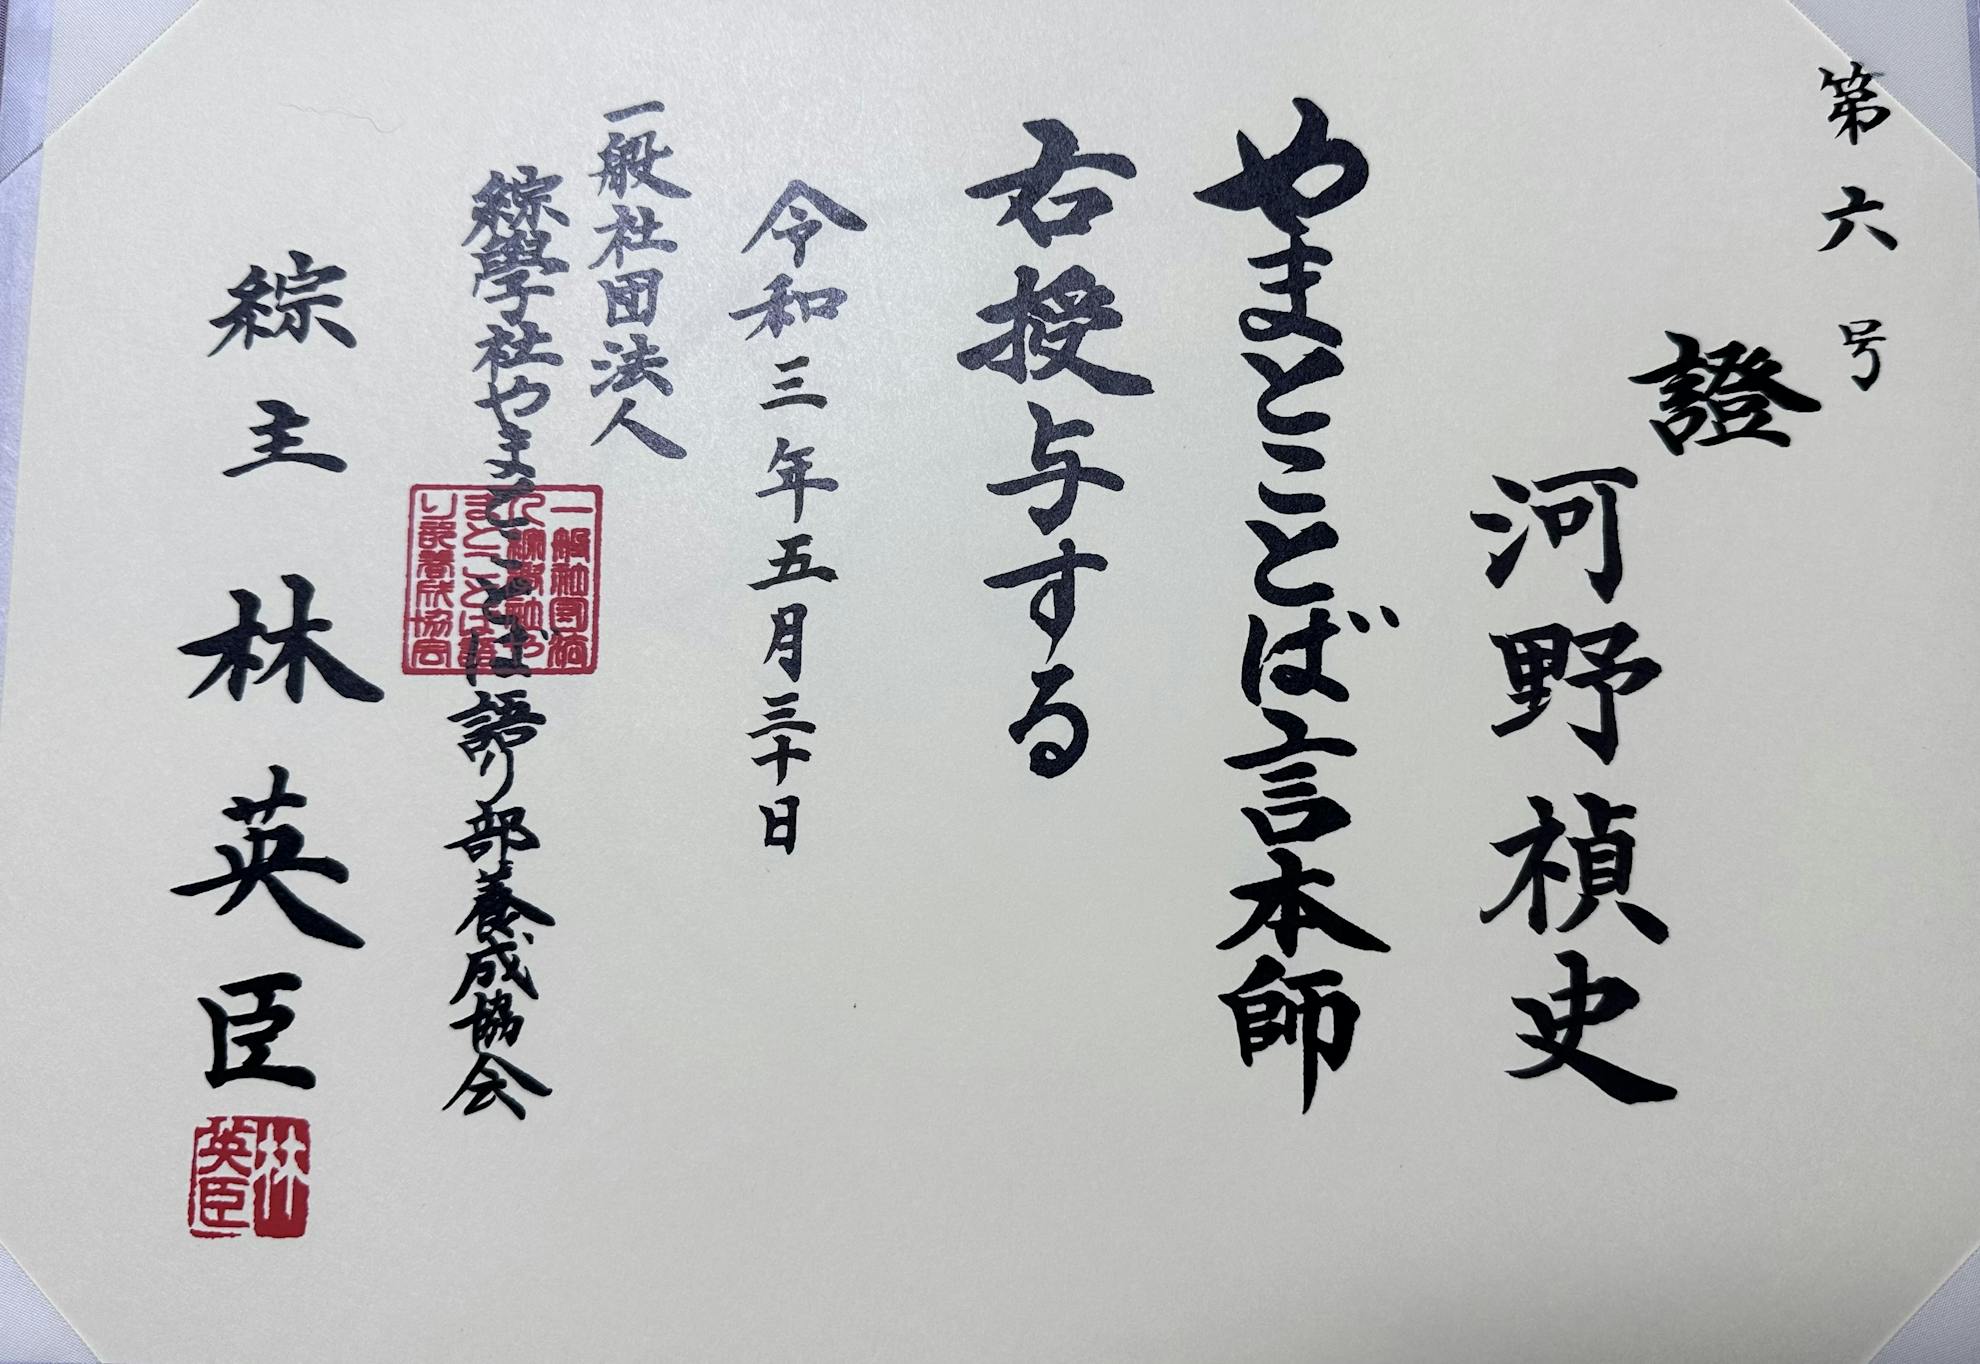 第六号
證
河野禎史
やまとことば言本師
右授与する
令和三年五月三十日
一般社団法人
綜學社やまとことば語り部養成協会
綜主 林英臣
一般社団法
人綜學社や
まとことば語
り部養成協会
林
英臣